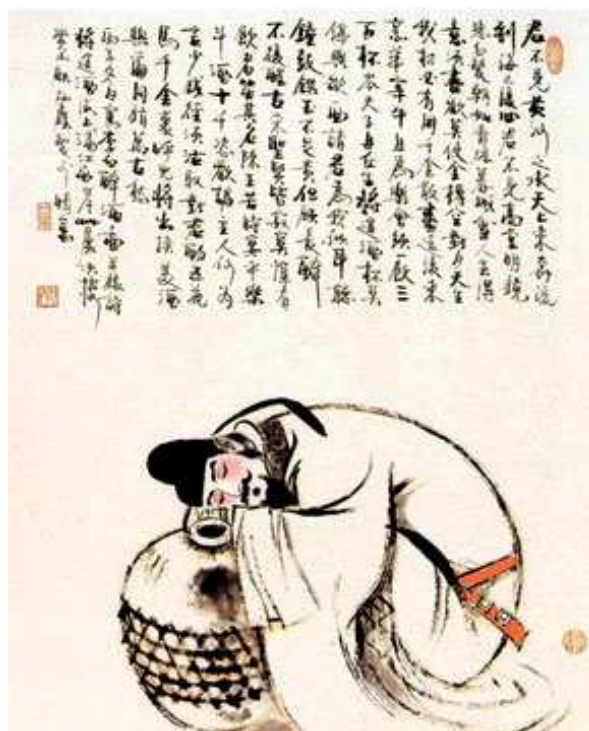 君不見黃河之水天上來奔流
到海不復回君不見高堂明鏡
悲白髮朝如青絲暮成雪人生得
意須盡歡莫使金樽空對月天生
我材必有用千金散盡還復來
烹羊宰牛且為樂會須一飲三
百杯岑夫子丹丘生將進酒杯莫
停 歌一曲請君為我 耳聽
鐘鼓饌玉不足貴但願長醉
不復醒古來聖賢皆寂寞惟有
飲者留其名陳王昔時宴平樂
斗酒十千恣歡謔主人何為
言少錢徑須沽取對君酌五花
馬千金裘呼兒將出換美酒
與爾同銷萬古愁
李白醉酒圖並錄詩
將進酒